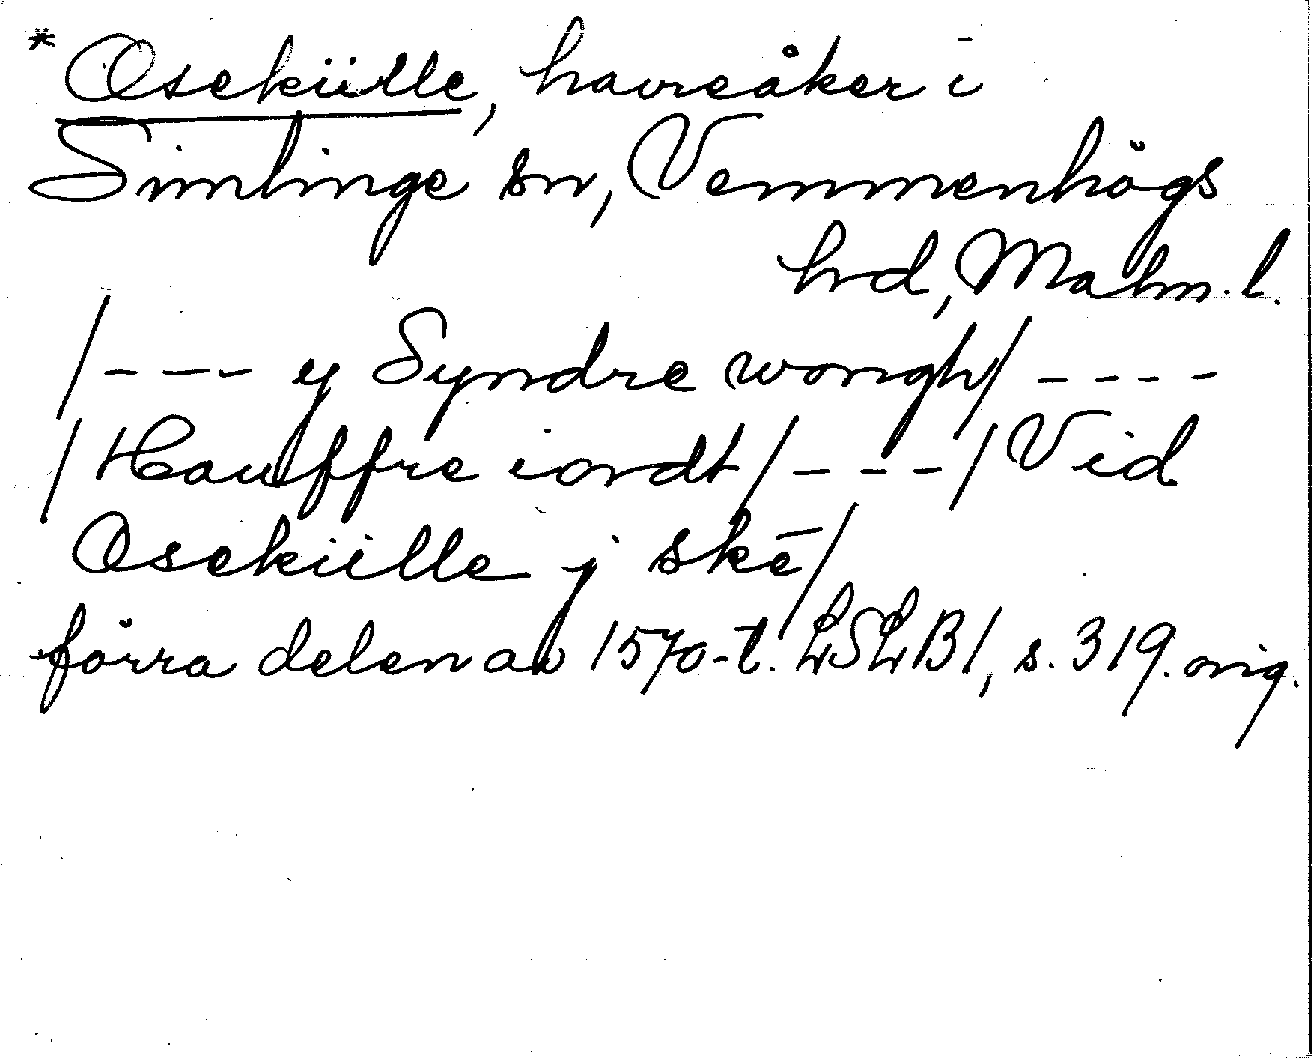 *Oseküille, havreåker i
Simlinge sn, Vemmenhögs
hrd, Malm. l.
/--- y Syndre wongh/ ----
/Hauffre iordt/ ---/ Vid
Oseküille j skē/
förra delen av 1570-t. LSLB1, s. 319. orig.